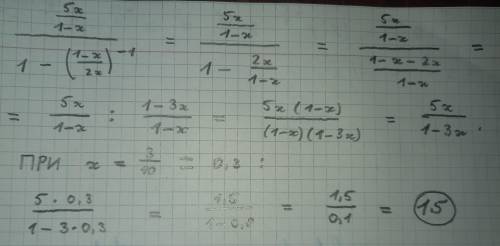 (5x/(1-x)) / (1 - ((1-x)/(2x))^(-1)) = (5x/(1-x)) / (1 - 2x/(1-x)) = (5x/(1-x)) / ((1-x-2x)/(1-x)) =
= 5x/(1-x) : (1-3x)/(1-x) = 5x(1-x)/((1-x)(1-3x)) = 5x/(1-3x).
ПРИ x = 3/10 = 0,3 :
(5·0,3)/(1-3·0,3) = 1,5/(1-0,9) = 1,5/0,1 = 15